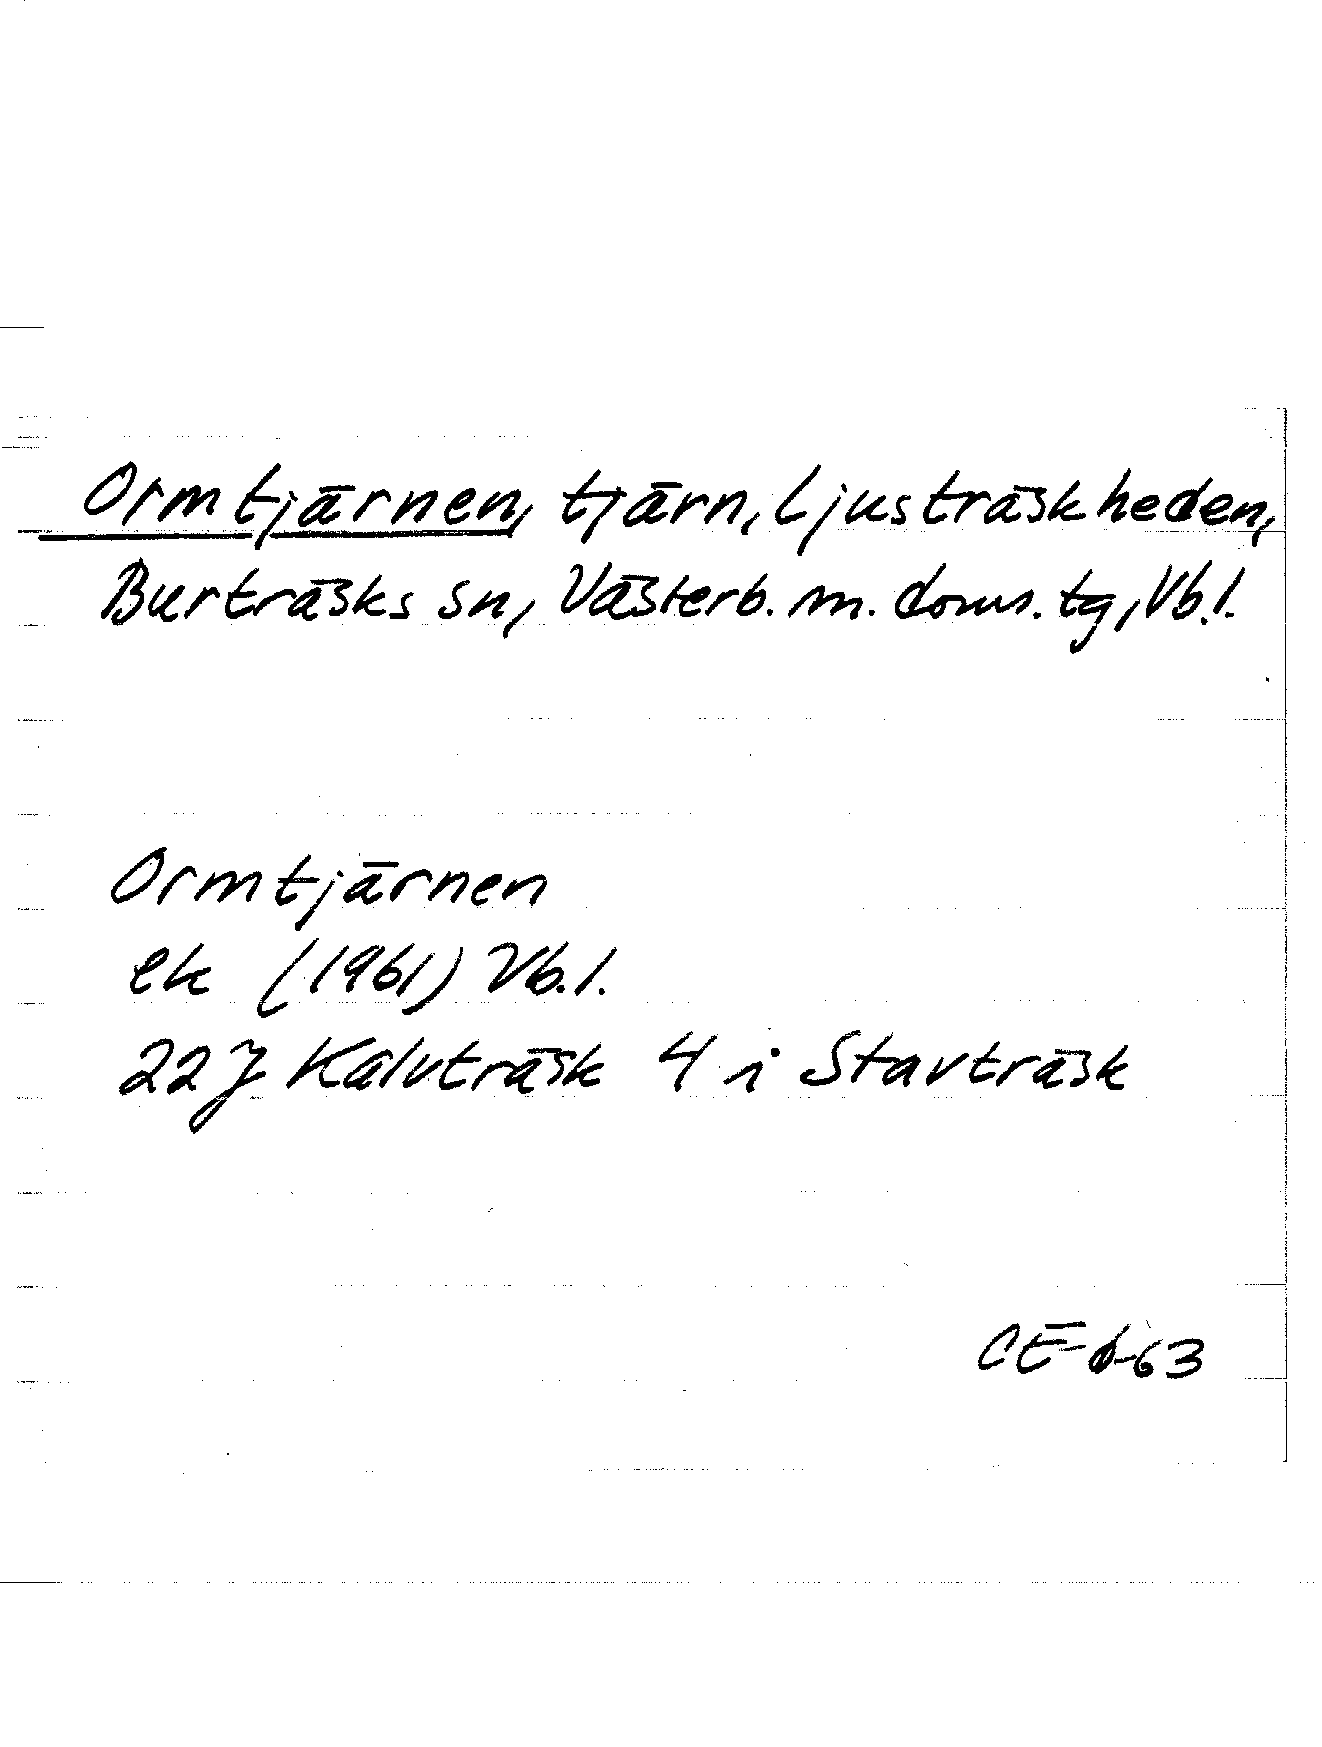 Ormtjärnen, tjärn, Ljusträskheden,
Burträsks sn, Västerb. m. doms. tg, Vb.l.
Ormtjärnen
ek (1961) Vb.l.
22J Kalvträsk 4 i Stavträsk
CE-6-63